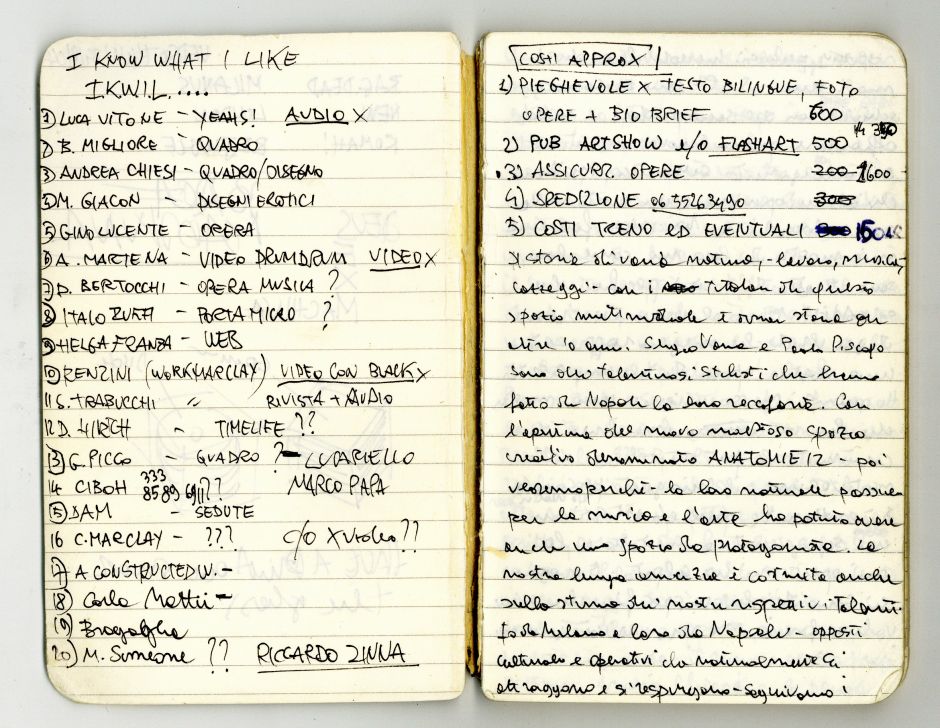 I KNOW WHAT I LIKE
IKWIL.....
1) LUCA VITONE - YEAHS! AUDIO X
2) B. MIGLIORE - QUADRO
3) ANDREA CHIESI - QUADRO/DISEGNO
4) M. GIACON - DISEGNI EROTICI
5) GINO LUCENTE - OPERA
6) A. MARTENA - VIDEO DRUMDRUM VIDEO X
7) D. BERTOCCHI - OPERA MUSICA ?
8) ITALO ZUFFI - PORTA MICRO ?
9) HELGA FRANZA - WEB
10) RENZINI (WORKMARCLAY) VIDEO CON BLACK X
11 S. TRABUCCHI " RIVISTA + AUDIO
12 D. HIRCH - TIMELIFE ??
13) G. PICCO - QUADRO ? - LUCARIELLO
14 CIBOH 333 8589 ?? MARCO PAPA
15) DAM - SEDUTE
16 C. MARCLAY - ??? c/o ??
17) A CONSTRUCTED W. -
18) Carlo -
19) Bragaglia
20) M. Simeone ?? RICCARDO ZINNA
COSTI APPROX
1) PIEGHEVOLE X TESTO BILINGUE, FOTO
OPERE + BIO BRIEF 600
2) PUB ARTSHOW e/o FLASHART 500
3) ASSICURZ. OPERE 200 1600
4) SPEDIZIONE 06 35263490 300
5) COSTI TRENO ED EVENTUALI
storia di varia natura, - lavoro, musica,
- con i titolari di questo
spazio multimediale è ormai storia di
oltre 10 anni. Sergio e Paola Piscopo
sono due talentuosi stilisti che hanno
fatto di Napoli la loro roccaforte. Con
l'apertura del nuovo maestoso spazio
creativo denominato ANATOMIE 12 - poi
vedremo perché - la loro naturale passione
per la musica e l'arte ha potuto avere
anche uno spazio da protagonista. La
nostra lunga amicizia è costruita anche
sulla stima dei nostri rispettivi talenti.
Io da Milano e loro da Napoli - opposti
culturali e operativi che naturalmente si
attraggono e si respingono - Seguivamo i